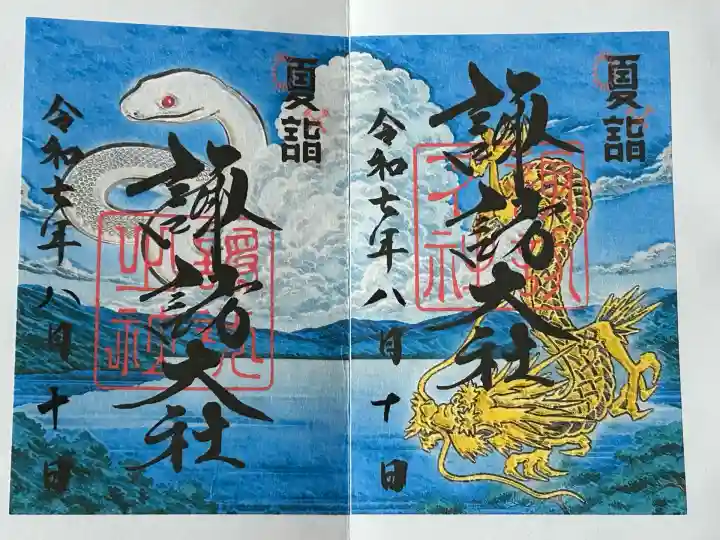 夏詣
諏訪大社
令和七年八月十日
夏詣
諏訪大社
令和七年八月十日